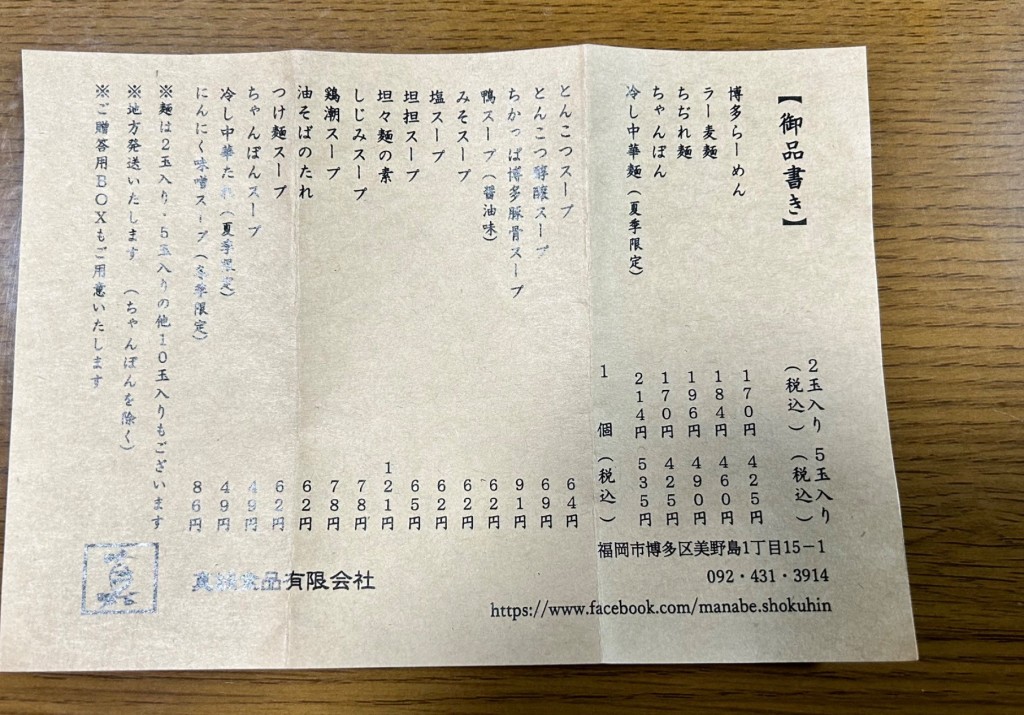 【御品書き】
2玉入り 5玉入り
(税込) (税込)
博多らーめん 170円 425円
ラー麦麺 184円 460円
ちぢれ麺 196円 490円
ちゃんぽん 170円 425円
冷し中華麺(夏季限定) 214円 535円
1個(税込)
とんこつスープ 64円
とんこつ醇醸スープ 69円
ちかっぱ博多豚骨スープ 91円
鴨スープ(醤油味) 62円
みそスープ 62円
塩スープ 62円
坦担スープ 65円
坦々麺の素 121円
しじみスープ 78円
鶏潮スープ 78円
油そばのたれ 62円
つけ麺スープ 62円
ちゃんぽんスープ 49円
冷し中華たれ(夏季限定) 49円
にんにく味噌スープ(冬季限定) 86円
※麺は2玉入り・5玉入りの他10玉入りもございます
※地方発送いたします (ちゃんぽんを除く)
※ご贈答用BOXもご用意いたします
福岡市博多区美野島1丁目15−1
092・431・3914
https://www.facebook.com/manabe.shokuhin
真鍋食品有限会社